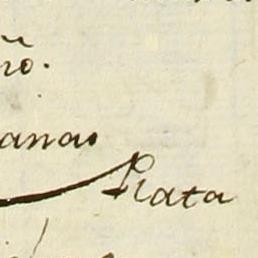 ño.
anas
Plata